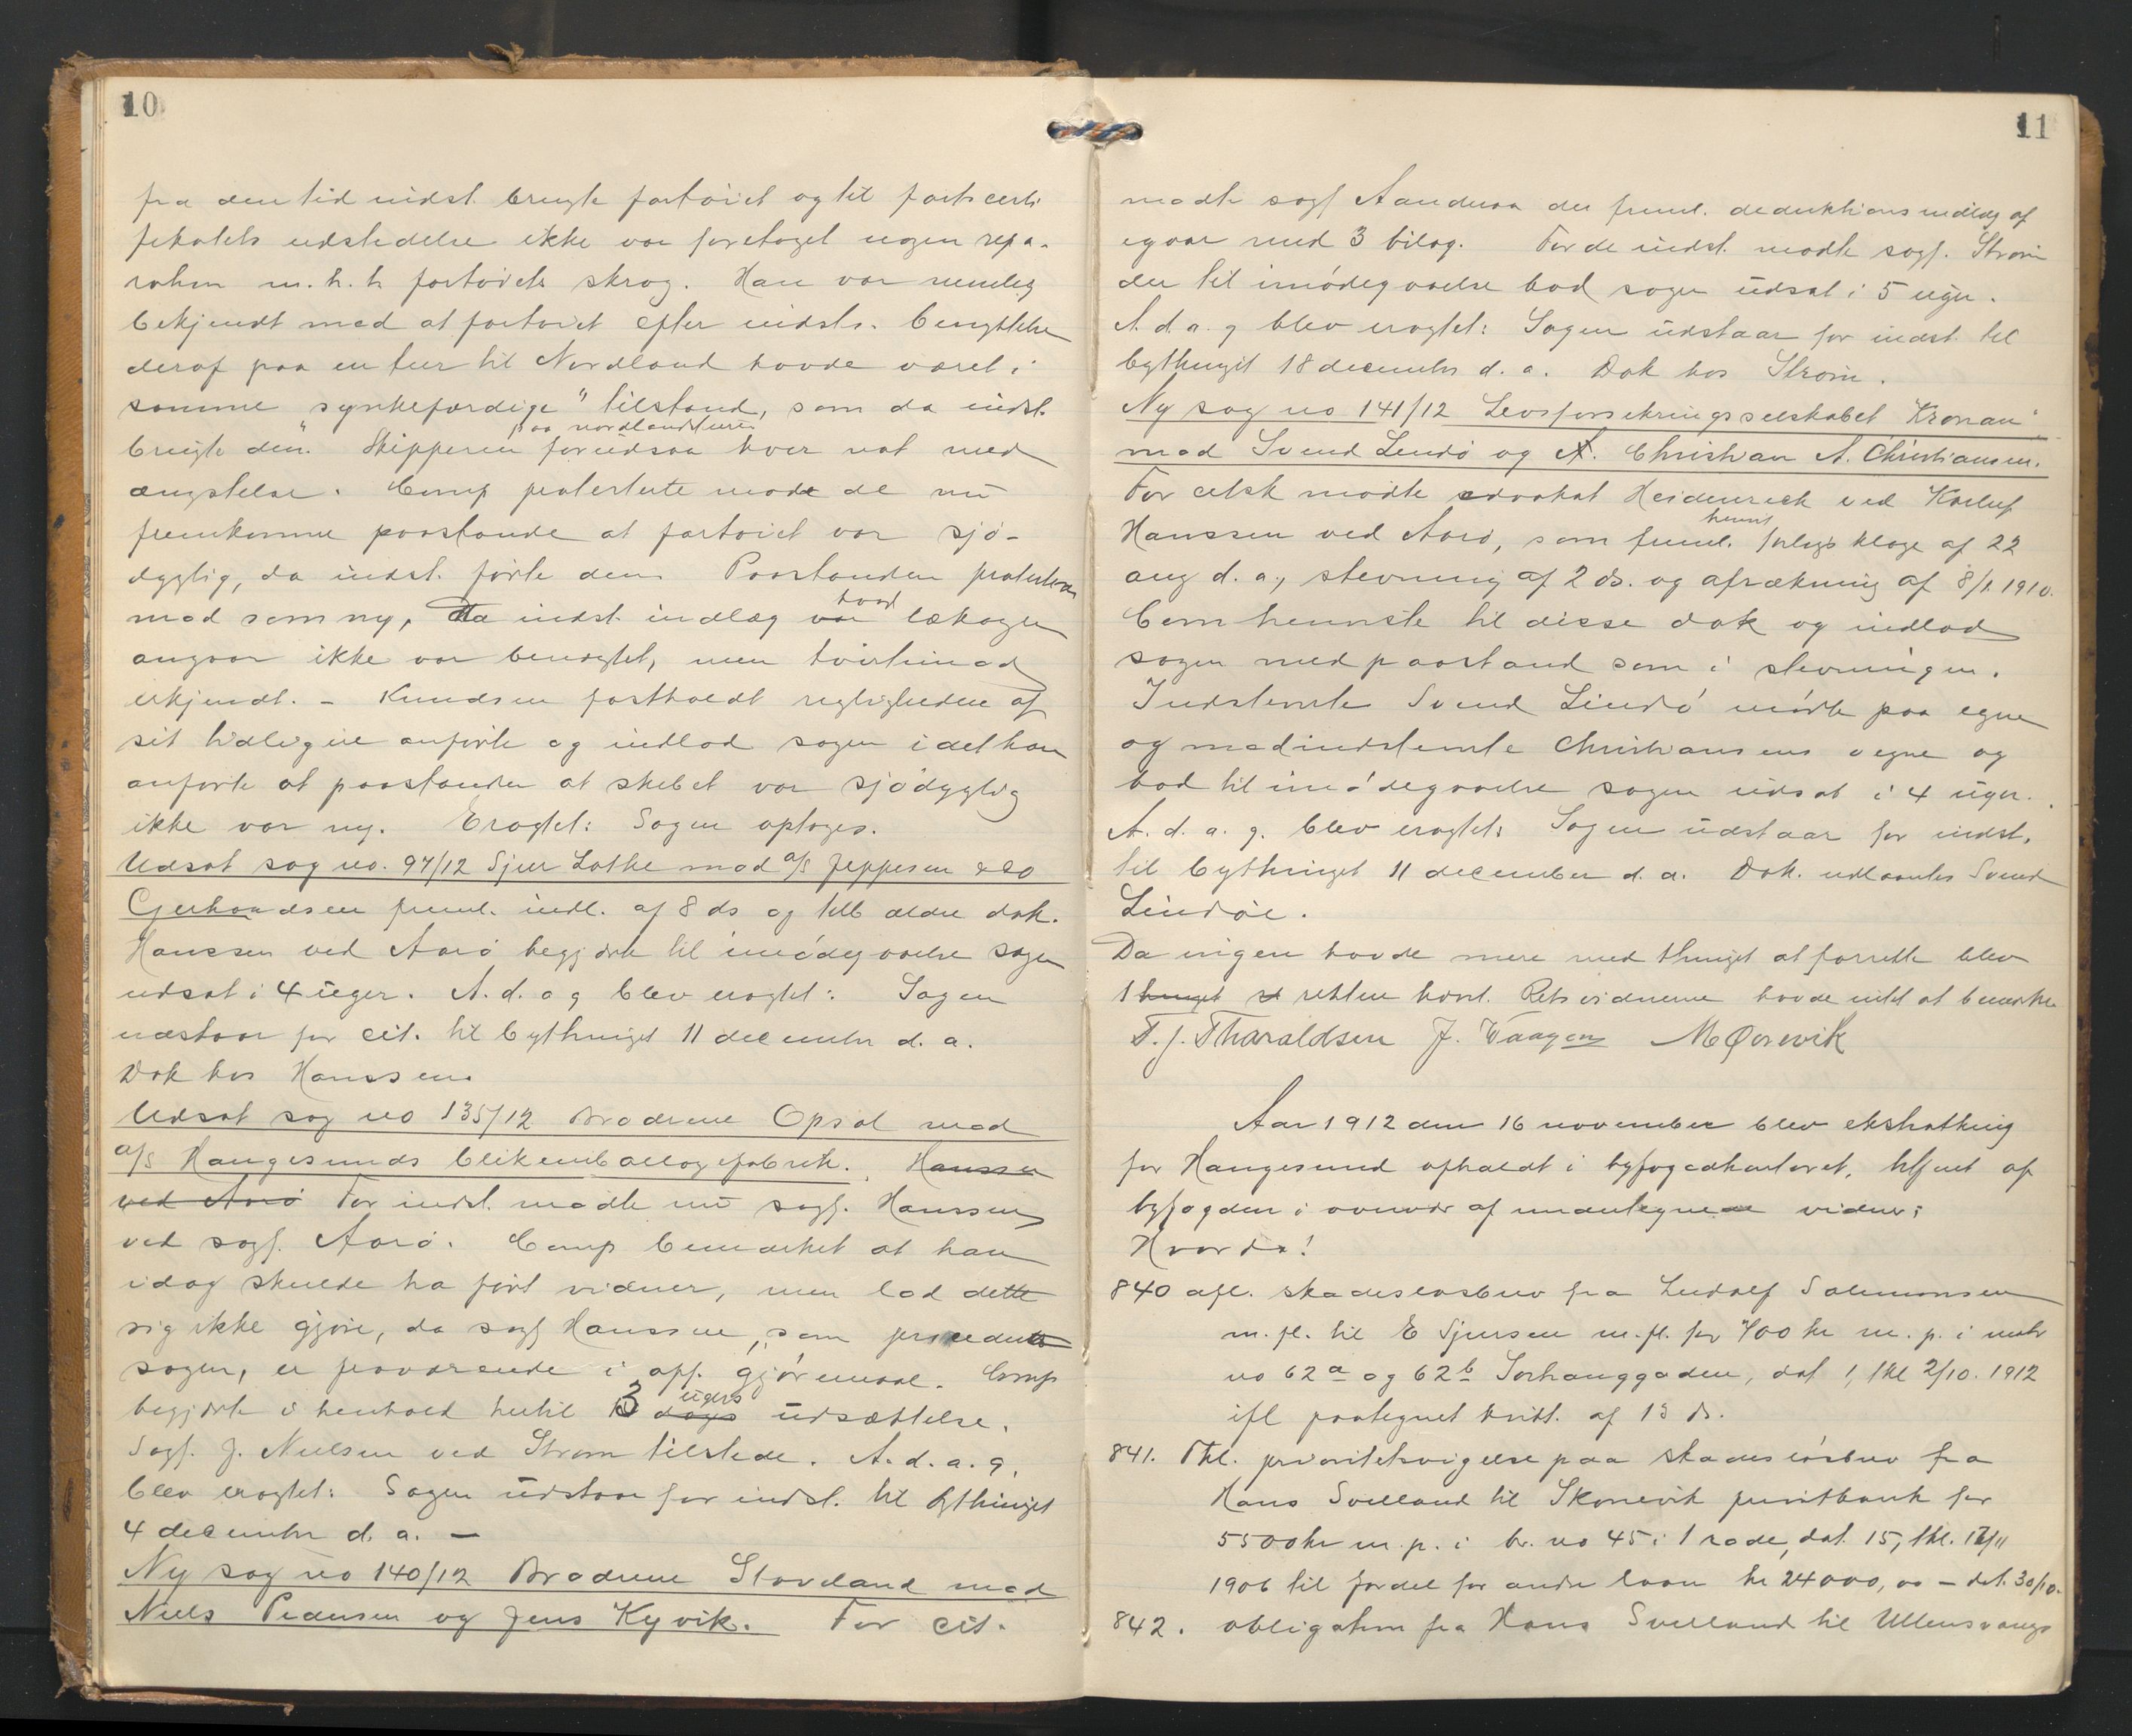 10
fra den tid indst. brugte fartøiet og til fartscerti
fikatets udstedelse ikke var foretaget nogen repa-
ration m.h.t. fartøiets skrog. Han var nemlig
bekjendt med at fartøiet efter indsts. benyttelse
deraf paa en tur til Nordland havde været i
samme "synkefærdige" tilstand, som da indst.
paa nordlandsturen
brugte den. Skipperen forudsaa hver nat med
ængstelse. Comp protesterte mode de nu
fremkomne paastande at fartøiet var sjø-
dygtig, da indst. førte den. Paastanden protesteres
mod som ny, da indst. indlæg var hvad lækagen
angaar ikke var benegtet, men tvertimod
erkjendt. - Knudsen fastholdt rigtigheden af
sit tidligere anførte og indlod sagen idet han
anførte at paastanden at skibet var sjødygtig
ikke var ny. Eragtet: Sagen optages.
Udsat sag no. 97/12 Sjur Lothe mod a/s Jeppesen & Co
Gerhardsen freml. indl. af 8 ds og tilb ældre dok.
Hanssen ved Aarø begjærte til imødegaaelse sagen
udsat i 4 uger. A. d. a g blev eragtet: Sagen
udstaar for cit. til bythinget 11 december d. a.
Dok hos Hanssen.
Udsat sag no 135/12 Brødrene Opsal mod
a/s Haugesunds blikemballagefabrik. Hanssen
ved Aarø For indst. mødte nu sagf. Hanssen
ved sagf. Aarø. Comp bemærket at han
idag skulde ha ført vidner, men lod dette
sig ikke gjøre, da sagf Hanssen, som procederte
sagen, er fraværende i off. gjøremaal. Comp
begjærte i henhold hertil 3 dages ugers udsættelse.
Sagf. J. Nielsen ved Strøm tilstede. A. d. a. g.
blev eragtet: Sagen udstaar for indst. til bythinget
4 december d. a. —
Ny sag no 140/12 Brødrene Stavland mod
Niels Pedersen og Jens Kyvik. For cit.
11
mødte sagf Aanderaa der freml. deduktionsindlæg af
igaar med 3 bilag. For de indst. mødte sagf. Strøm
der til imødegaaelse bad sagen udsat i 5 uger.
A. d. a. g blev eragtet: Sagen udstaar for indst. til
bythinget 18 december d. a. Dok hos Strøm.
Ny sag no 141/12 Livsforsikringsselskabet "Kronan"
mod Svend Lindø og A. Christian A. Christiansen.
For citsk mødte advokat Heidenreich ved
Hanssen ved Aarø, som freml. forligs klage af 22
aug d. a., stevning af 2 ds. og afrækning af 8/1. 1910.
Com henviste til disse dok og indlod
sagen med paastand som i stevningen.
Indstevnte Svend Lindø mødte paa egne
og medindstevnte Christiansens vegne og
bad til imødegaaelse sagen udsat i 4 uger.
A. d. a. g. blev eragtet: Sagen udstaar for indst.
til bythinget 11 december d. a. Dok. udlaantes Svend
Lindøe.
Da ingen havde mere med thinget at forrette blev
thinget  retten hævt. Retsvidnerne havde intet at bemerke
T. J. Tharaldsen J. Waagen M Qvrevik
Aar 1912 den 16 november blev ekstrathing
for Haugesund afholdt i byfogedkontoret, betjent af
byfogden i overvær af undertegnede vidner;
Hvorda!
840 afl. skadesløsbrev fra Ludolf Salomonsen
m. fl. til E Sjursen m. fl. for 400 kr m. p. i matr
no 62a og 62b Sørhauggaden, dat 1, thl 2/10. 1912
ifl paategnet kvitt. af 15 ds.
841. Thl. prioritetsvigelse paa skadesløsbrev fra
Hans Svelland til Skonevik privitbank for
5500 kr m. p. i br. no 45 i 1 rode, dat. 15, thl. 17/11
1906 til fordel for andre laan kr 24000,00 – dat. 30/10.
842. obligation fra Hans Svelland til Ullensvangs